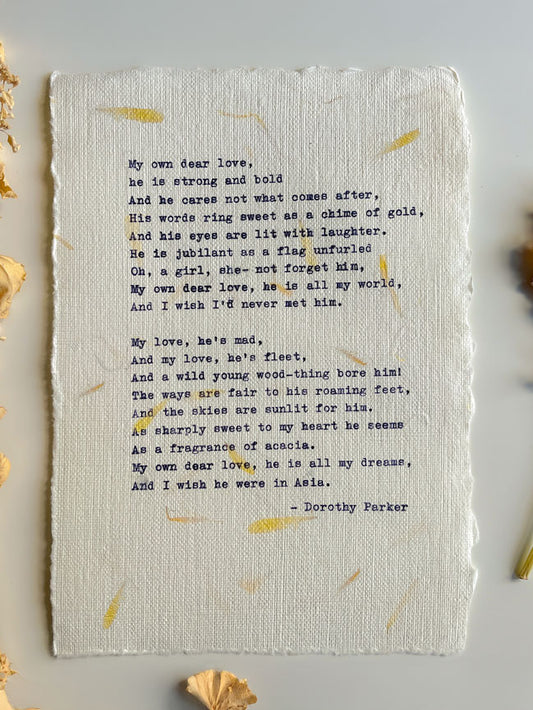 My own dear love,
he is strong and bold
And he cares not what comes after,
His words ring sweet as a chime of gold,
And his eyes are lit with laughter.
He is jubilant as a flag unfurled
Oh, a girl, she- not forget him,
My own dear love, he is all my world,
And I wish I'd never met him.
My love, he's mad,
And my love, he's fleet,
And a wild young wood-thing bore him!
The ways are fair to his roaming feet,
And the skies are sunlit for him.
As sharply sweet to my heart he seems
As a fragrance of acacia.
My own dear love, he is all my dreams,
And I wish he were in Asia.
- Dorothy Parker